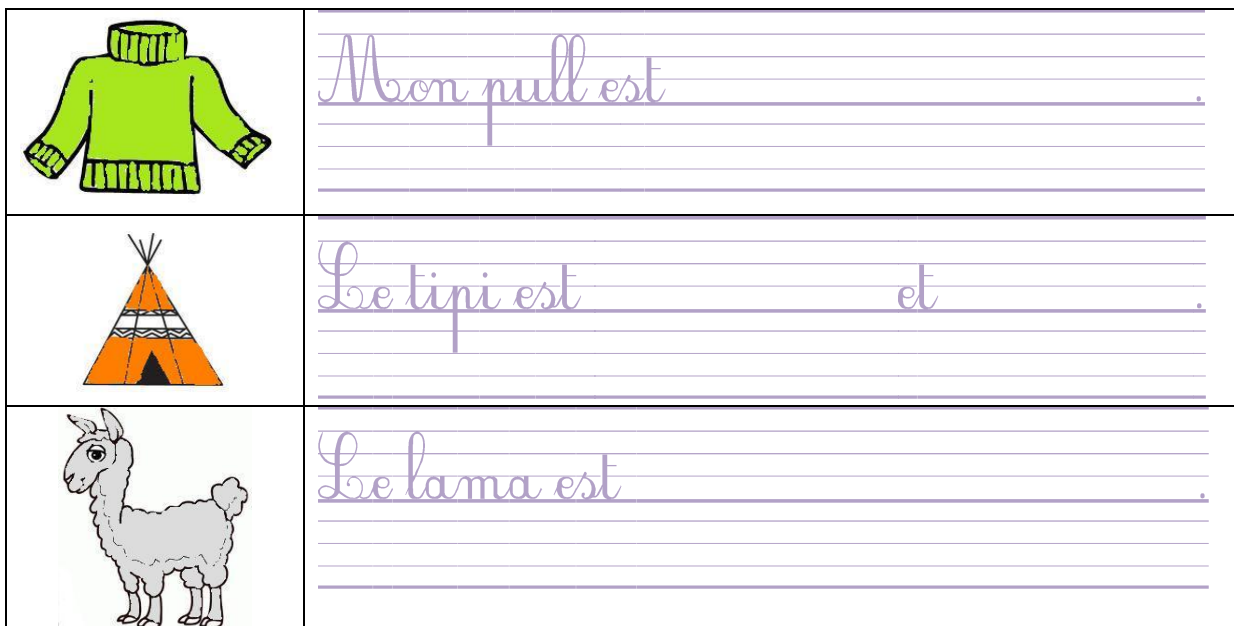 Mon pull est .
Le tipi est et .
Le lama est .